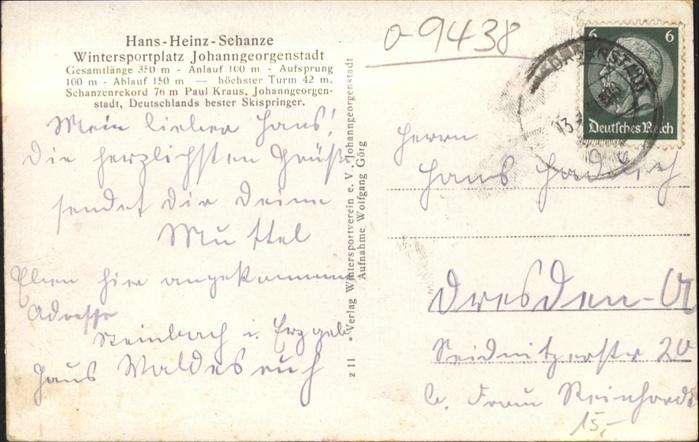 Hans-Heinz-Schanze
Wintersportplatz Johanngeorgenstadt
Gesamtlänge 350 m - Anlauf 100 m - Aufsprung
100 m - Ablauf 150 m — höchster Turm 42 m.
Schanzenrekord 76 m Paul Kraus, Johanngeorgen-
stadt, Deutschlands bester Skispringer.
Mein lieber Hans!
Die herzlichsten Grüße
sendet Dir Deine
Muttel
Eben hier angekommen
Adresse
Steinbach i. Erzgeb.
Haus Waldesruh
z 11 * Verlag Wintersportverein e. V. Johanngeorgenstadt
Aufnahme Wolfgang Görg
0-9438
6 6
Deutsches Reich
13.
Herrn
Hans
Dresden-A
Seidnitzerstr 20
b. Frau Reinhardt
15,-